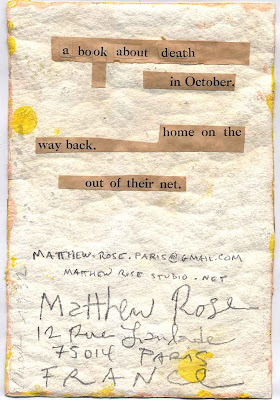 a book about death
in October.
home on the
way back.
out of their net.
MATTHEW.ROSE.PARIS@GMAIL.COM
MATTHEW ROSE STUDIO.NET
Matthew Rose
12 Rue
75014 PARIS
FRANCE